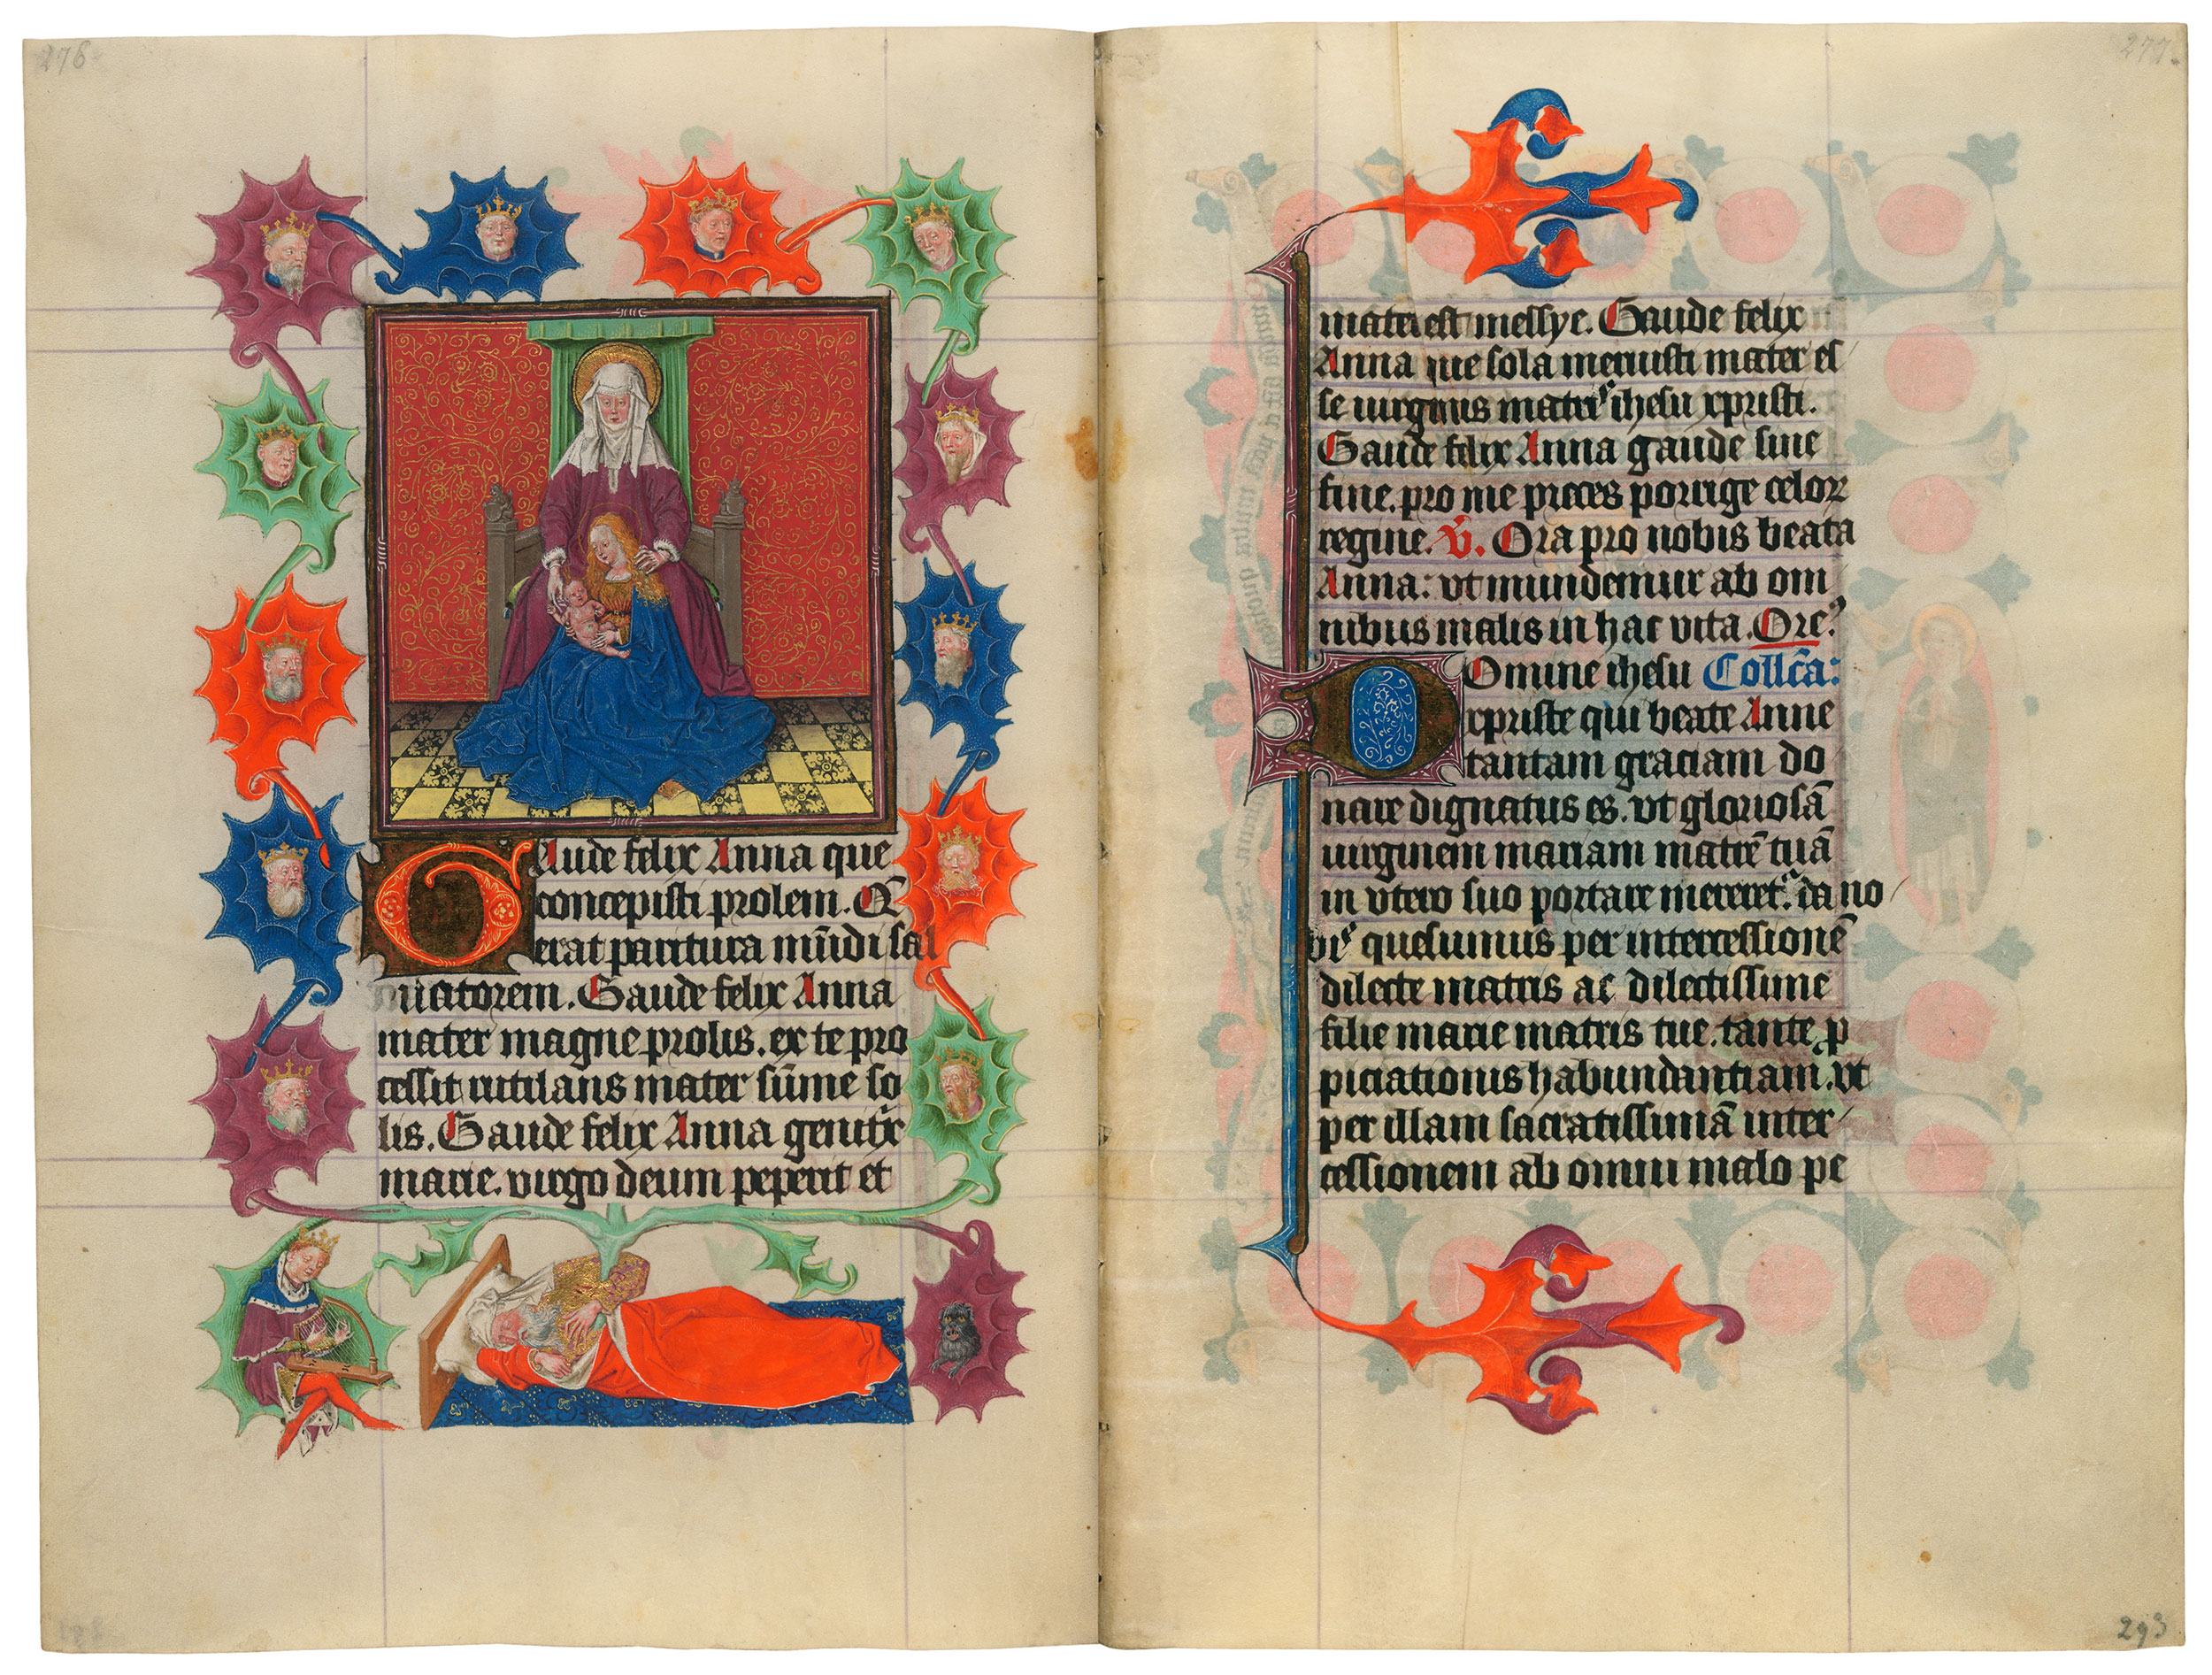 276
Gaude felix Anna que
concepisti prolem. Q̄
erat paritura mūdi sal
uatorem. Gaude felix Anna
mater magne prolis. ex te pro
cessit rutilans mater sūme so
lis. Gaude felix Anna genitͥx
marie. virgo deum peperit et
277
mater est messye. Gaude felix
Anna que sola meruisti mater es
se uirginis matrꝰ ihesu xpristi.
Gaude felix Anna gaude sine
fine. pro me preces porrige celoꝝ
regine. v̄. Ora pro nobis beata
Anna: vt mundemur ab om
nibus malis in hac vita. Oreꝰ
Domine ihesu Collc̄a:
xpriste qui beate Anne
tantam graciam do
nare dignatus es. vt gloriosā
uirginem mariam matrē tuā
in vtero suo portare mereretꝰ. da no
biꝰ quesumus per intercessionē
dilecte matris ac dilectissime
filie marie matris tue. tante ꝓ
piciationis habundantiam. vt
per illam sacratissimā inter
cessionem ab omni malo pe
293